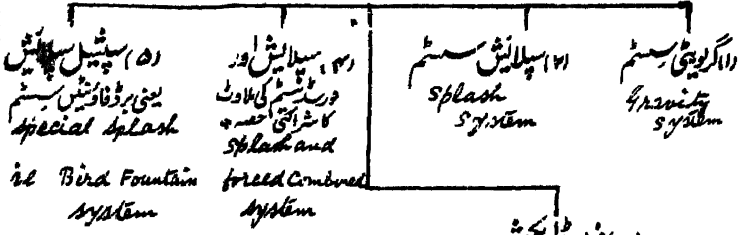 (۱) گریویٹی سسٹم
Gravity
system
(۲) سپلائش سسٹم
splash
system
(۴) سپلائش اور
فورسڈ سسٹم کی ملاوٹ
کا شراکتی حصہ
splash and
forced Combined
system
(۵) سپیشل سپلائش
یعنی برڈ فاؤنٹین سسٹم
special splash
ie Bird Fountain
system